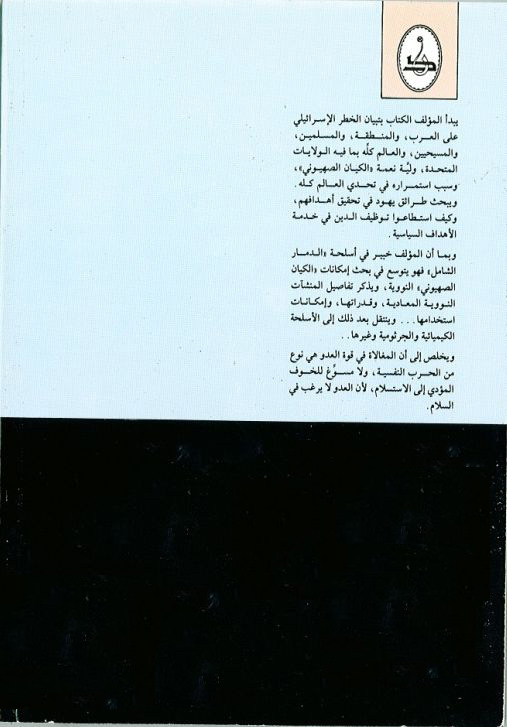 يبدأ المؤلف الكتاب بتبيان الخطر الإسرائيلي
على العرب، والمنطقة، والمسلمين،
والمسيحيين، والعالم كلّه بما فيه الولايات
المتحدة، وليّة نعمة «الكيان الصهيوني»،
وسبب استمراره في تحدي العالم كله.
ويبحث طرائق يهود في تحقيق أهدافهم،
وكيف استطاعوا توظيف الدين في خدمة
الأهداف السياسية.
وبما أن المؤلف خبير في أسلحة «الدمار
الشامل» فهو يتوسع في بحث إمكانات «الكيان
الصهيوني» النووية، ويذكر تفاصيل المنشآت
النووية المعادية، وقدراتها، وإمكانات
استخدامها... وينتقل بعد ذلك إلى الأسلحة
الكيميائية والجرثومية وغيرها..
ويخلص إلى أن المغالاة في قوة العدو هي نوع
من الحرب النفسية، ولا مسوِّغ للخوف
المؤدي إلى الاستسلام، لأن العدو لا يرغب في
السلام.